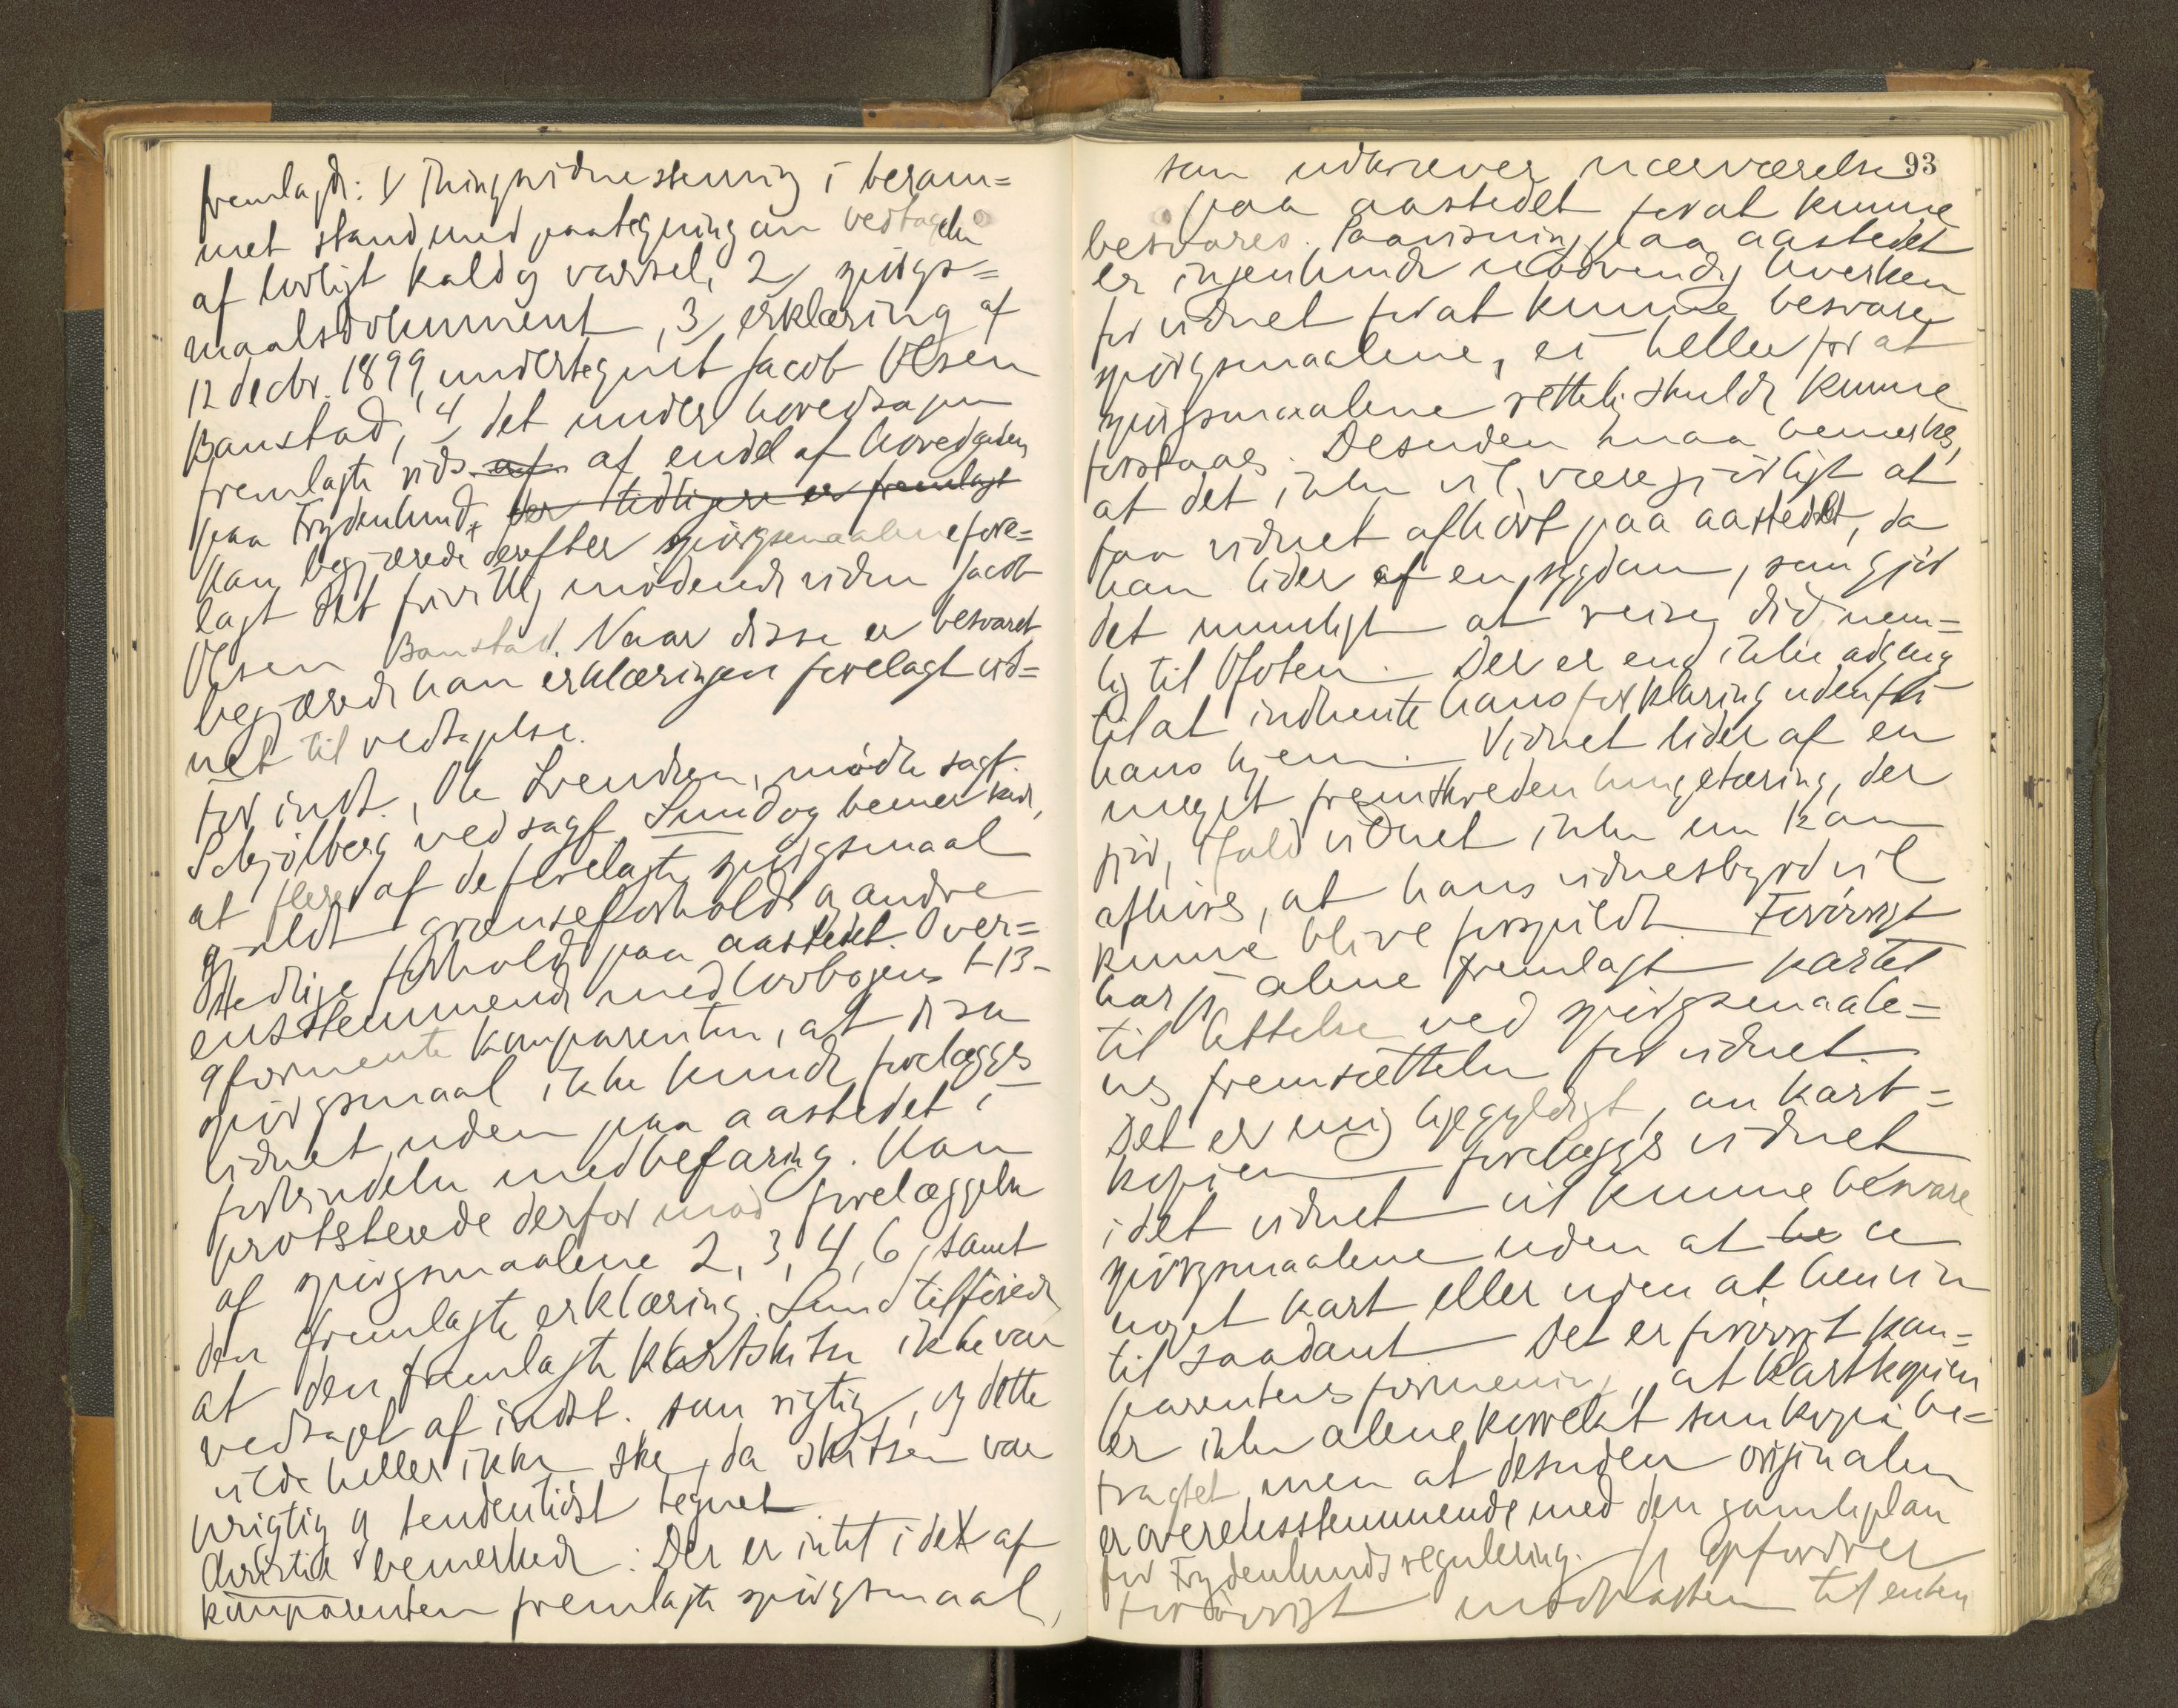 fremlagde: 1/ Thingsvidnestevning i beram=
met stand med paategning om vedtagelse
af lovligt kald og varsel, 2/ spørgs=
maalsdokument, 3/ erklæring af
12 decbr. 1899, undertegnet Jacob Olsen
Banstad, 4/ det under hovedsagen
fremlagte rids af af endel af hovedgaden
paa Frydenlund. der tidligere er fremlagt
Han begjærede derefter spørgsmaalene fore=
lagt det frivillig mødende vidne Jacob
Olsen Banstad. Naar disse er besvaret
begjærede han erklæringen forelagt vid=
net til vedtagelse.
For indst., Ole Svendsen, mødte sagf.
Schjølberg ved sagf. Lund og bemerkede,
at flere af de forelagte spørgsmaal
gjældt grænseforhold og andre
stedlige forhold paa aastedet. Over=
ensstemmende med lovbogens 1-13-
9 formente komparenten, at disse
spørgsmaal ikke kunde forelægges
vidnet uden paa aastedet i
forbindelse med befaring. Han
protesterede derfor mod forelæggelse
af spørgsmaalene 2, 3, 4, 6, samt
den fremlagte erklæring. Lund tilføiede
at den fremlagte kartskitse ikke var
vedtaget af indst. som rigtig, og dette
vilde heller ikke ske, da skitsen var
urigtig og tendentiøst tegnet.
bemerkede: Der er intet i det af
komparenten fremlagte spørgsmaal,
93
som udkræver nærværelse
paa aastedet for at kunne
besvares. Paavisning paa aastedet
er ingenlunde nødvendig hverken
for vidnet for at kunne besvare
spørgsmaalene, ei heller for at
spørgsmaalene rettelig skulde kunne
forstaaes. Desuden maa bemerkes,
at det ikke vil være gjørligt at
faa vidnet afhørt paa aastedet, da
han lider af en sygdom, som gjør
det umuligt at reise did, nem=
lig til Ofoten. Der er end ikke adgang
til at indhente hans forklaring udenfor
hans hjem. Vidnet lider af en
meget fremskreden lungetæring, der
gjør, ifald vidnet ikke nu kan
afhøres, at hans vidnesbyrd vil
kunne blive forspildt. Forøvrigt
har jeg alene fremlagt kartet
til lettelse ved spørgsmaale=
nes fremsættelse for vidnet.
Det er mig ligegyldigt, om kart=
kopien forelægges vidnet
idet vidnet vil kunne besvare
spørgsmaalene uden at he se
noget kart eller uden at henvise
til saadant. Det er forøvrigt kom=
parentens formening, at kartkopien
er ikke alene korrekt som kopi be=
tragtet, men at desuden originalen
er overensstemmende med den gamle plan
for Frydenlunds regulering. Jeg opfordrer
forøvrigt modparten til enten